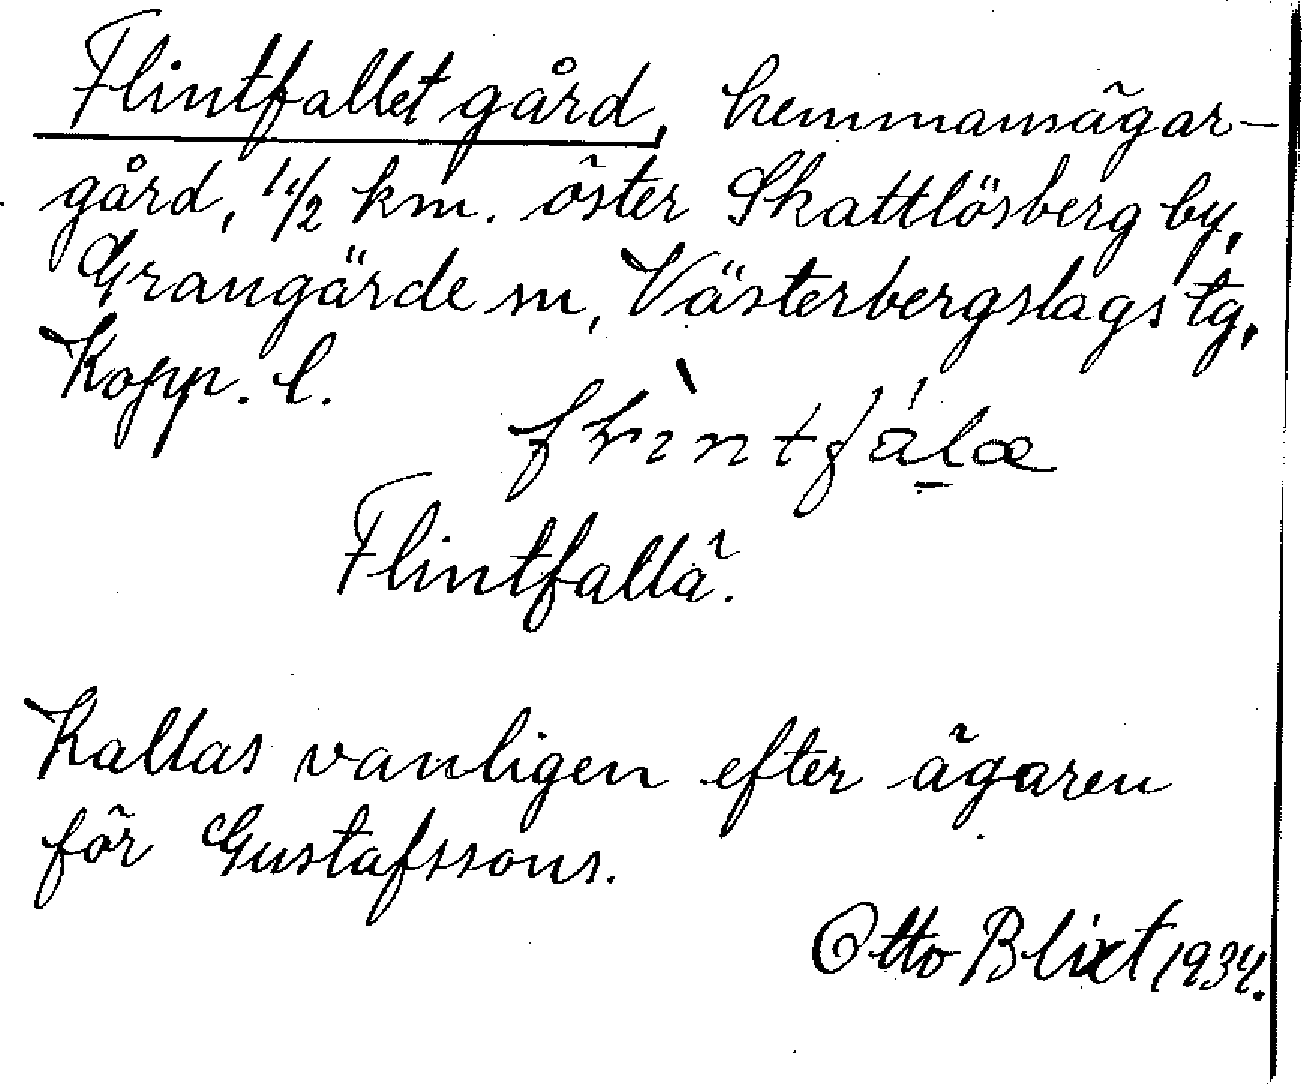 Flintfallet gård, hemmansägar-
gård, 1 1/2 km. öster Skattlösberg by,
Grangärde sn, Västerbergslags tg,
Kopp. l.
Flintfallä.
Kallas vanligen efter ägaren
för Gustafssons.
Otto Blixt 1934.